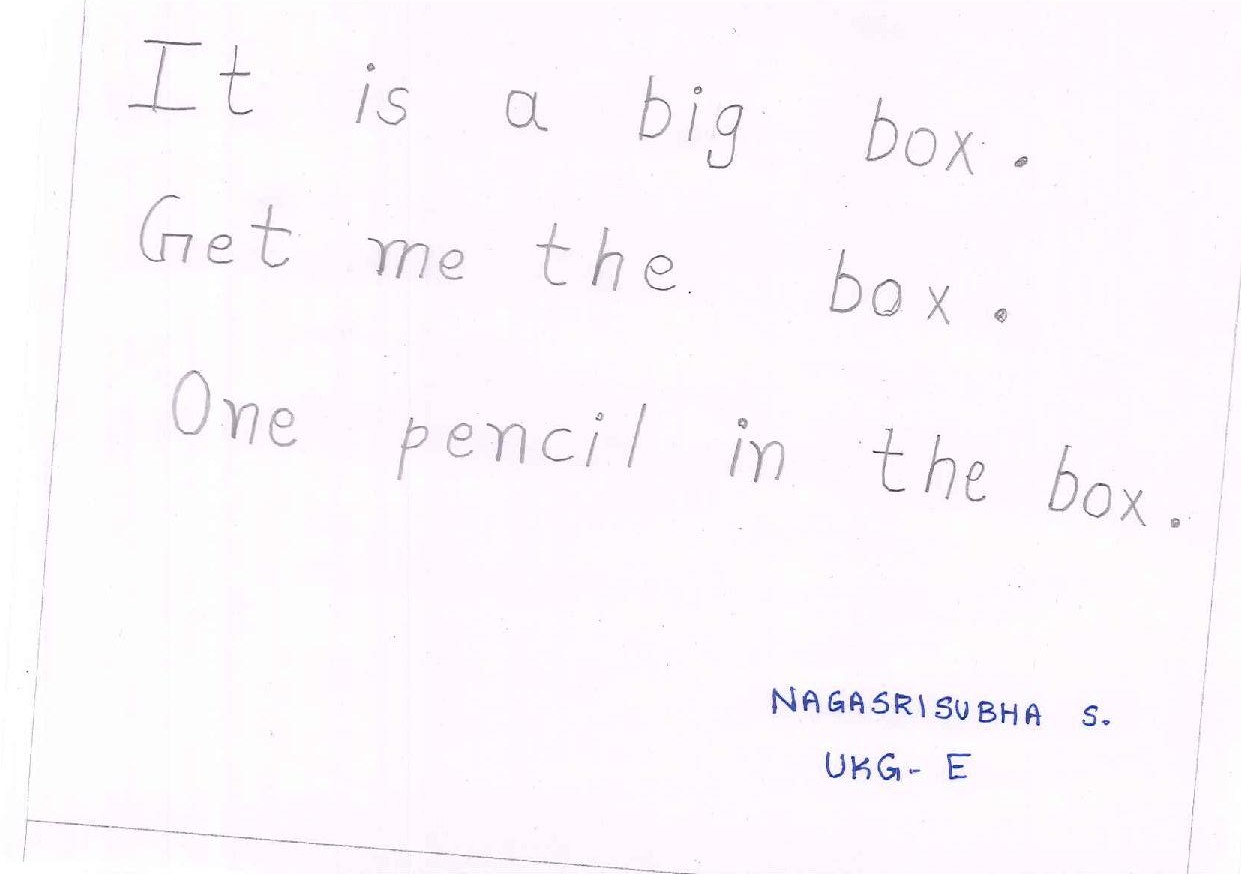 It is a big box.
Get me the box.
One pencil in the box.
NAGASRISUBHA S.
UKG- E